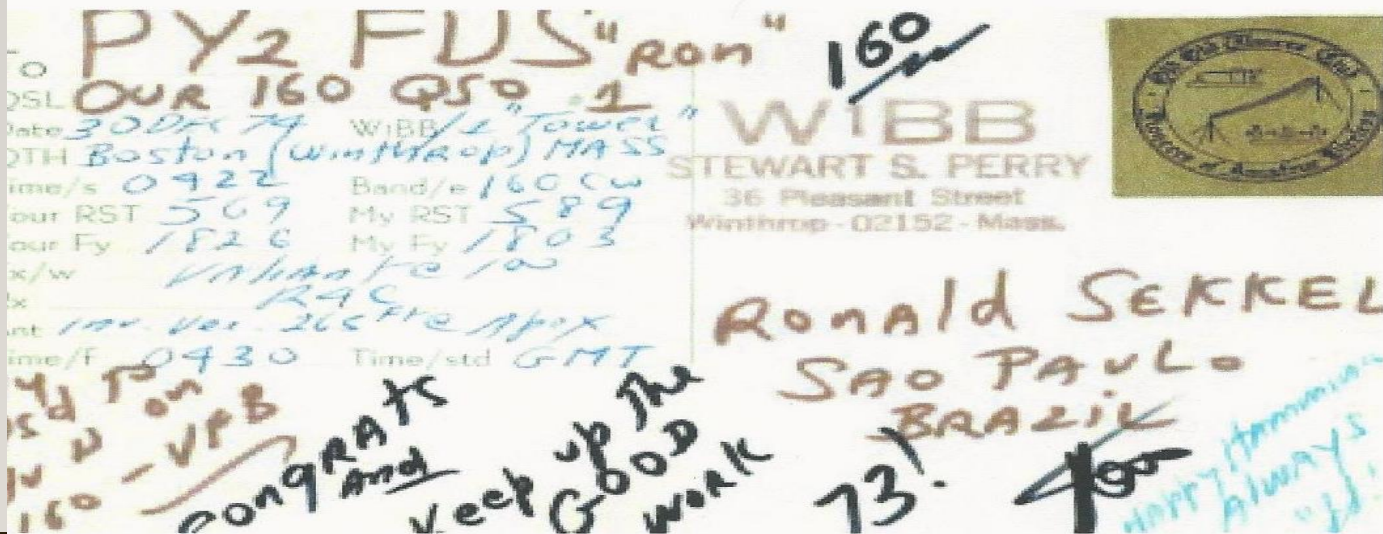 PY2 FUS "Ron"
160
OUR 160 QSO .1
QSL
Date 30 Dec 74 W1BB/1 "Tower"
QTH Boston (Winthrop) MASS
Time/s 0422 Band/e 160 CW
Your RST 569 My RST 589
Your Fy 1826 My Fy 1803
Tx/w Valiante 100
Rx R4C
Ant Inv. Vee. 265 Apex
Time/f 0430 Time/std GMT
W1BB
STEWART S. PERRY
36 Pleasant Street
Winthrop - 02152 - Mass.
Ronald SEKKEL
SAO PAULO
BRAZIL
on
160 - VFB
CongRAts
And
Keep up The
GOOD
work
73!
Happy Hamming
Always